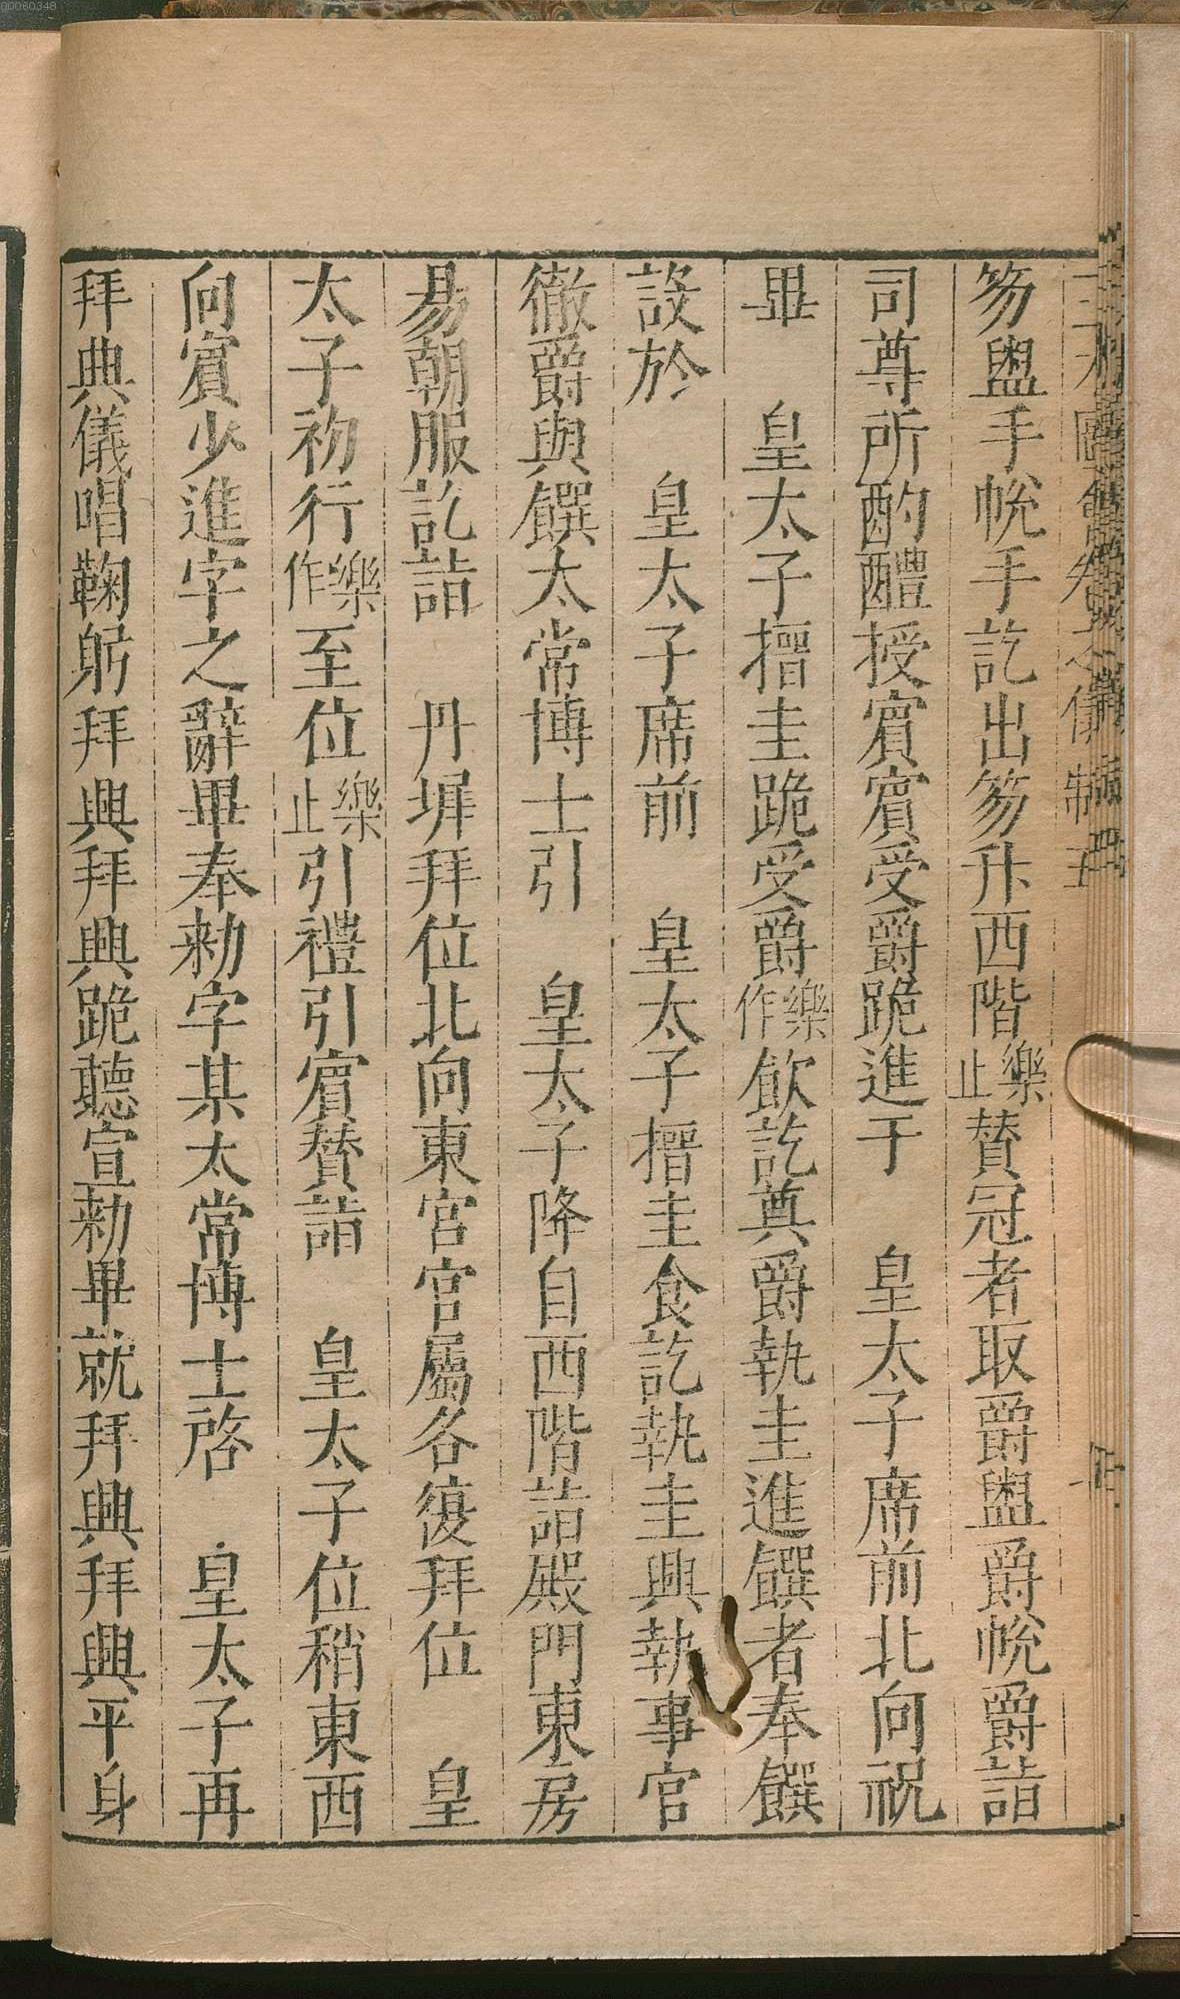 笏盥手帨手訖出笏升西階樂止賛冠者取爵盥爵帨爵詣
司尊所酌醴授賔賔受爵跪進于　皇太子席前北向祝
畢　皇太子搢圭跪受爵樂作飲訖奠爵執圭進饌者奉饌
設於　皇太子席前　皇太子搢圭食訖執圭興執事官
徹爵與饌太常博士引　皇太子降自西階詣殿門東房
易朝服訖詣　丹墀拜位北向東宮官屬各復拜位　皇
太子初行樂作至位樂止引禮引賔賛詣　皇太子位稍東西
向賔少進字之辭畢奉勑字某太常博士啓　皇太子再
拜典儀唱鞠躬拜興拜興跪聽宣勑畢就拜興拜興平身
00060348